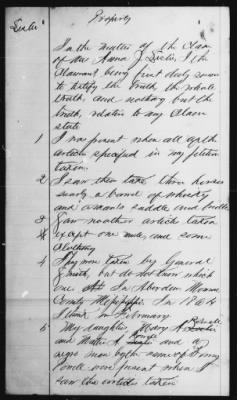 Property
In the matter of the Claim
of Mrs Anna J. I the
Claimant being first duly sworn
to testify the truth the whole
truth, and nothing but the
truth, relative to my Claim
state
1 I was present when all of the
articles specified in my petition
taken.
2 I saw them take three horses
nearly a barrel of whiskey
and a man's saddle and bridle
3 Saw no other articles taken
except one mule, and some
Clothing
4 They were taken by General
Smith, but do not know which
one In Aberdeen Monroe
County In 1864
I think in February
5 My daughter, Mary A
and Mattie A and a
negro man by the name of Henry
were present when I
saw the articles taken